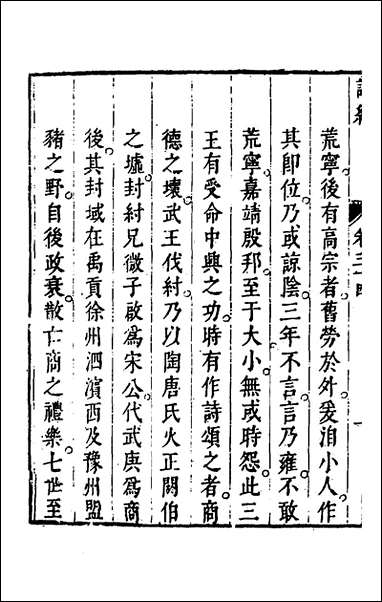 荒寧後有高宗者舊勞於外爰洎小人作
其即位乃或諒陰三年不言言乃雍不敢
荒寧嘉靖殷邦至于大小無或時怨此三
王有受命中興之功時有作詩頌之者商
德之壞武王伐紂乃以陶唐氏火正閼伯
之墟封紂兄微子啟為宋公代武庚為商
後其封域在禹貢徐州泗濱西及豫州盟
豬之野自後政衰散亡商之禮樂七世至